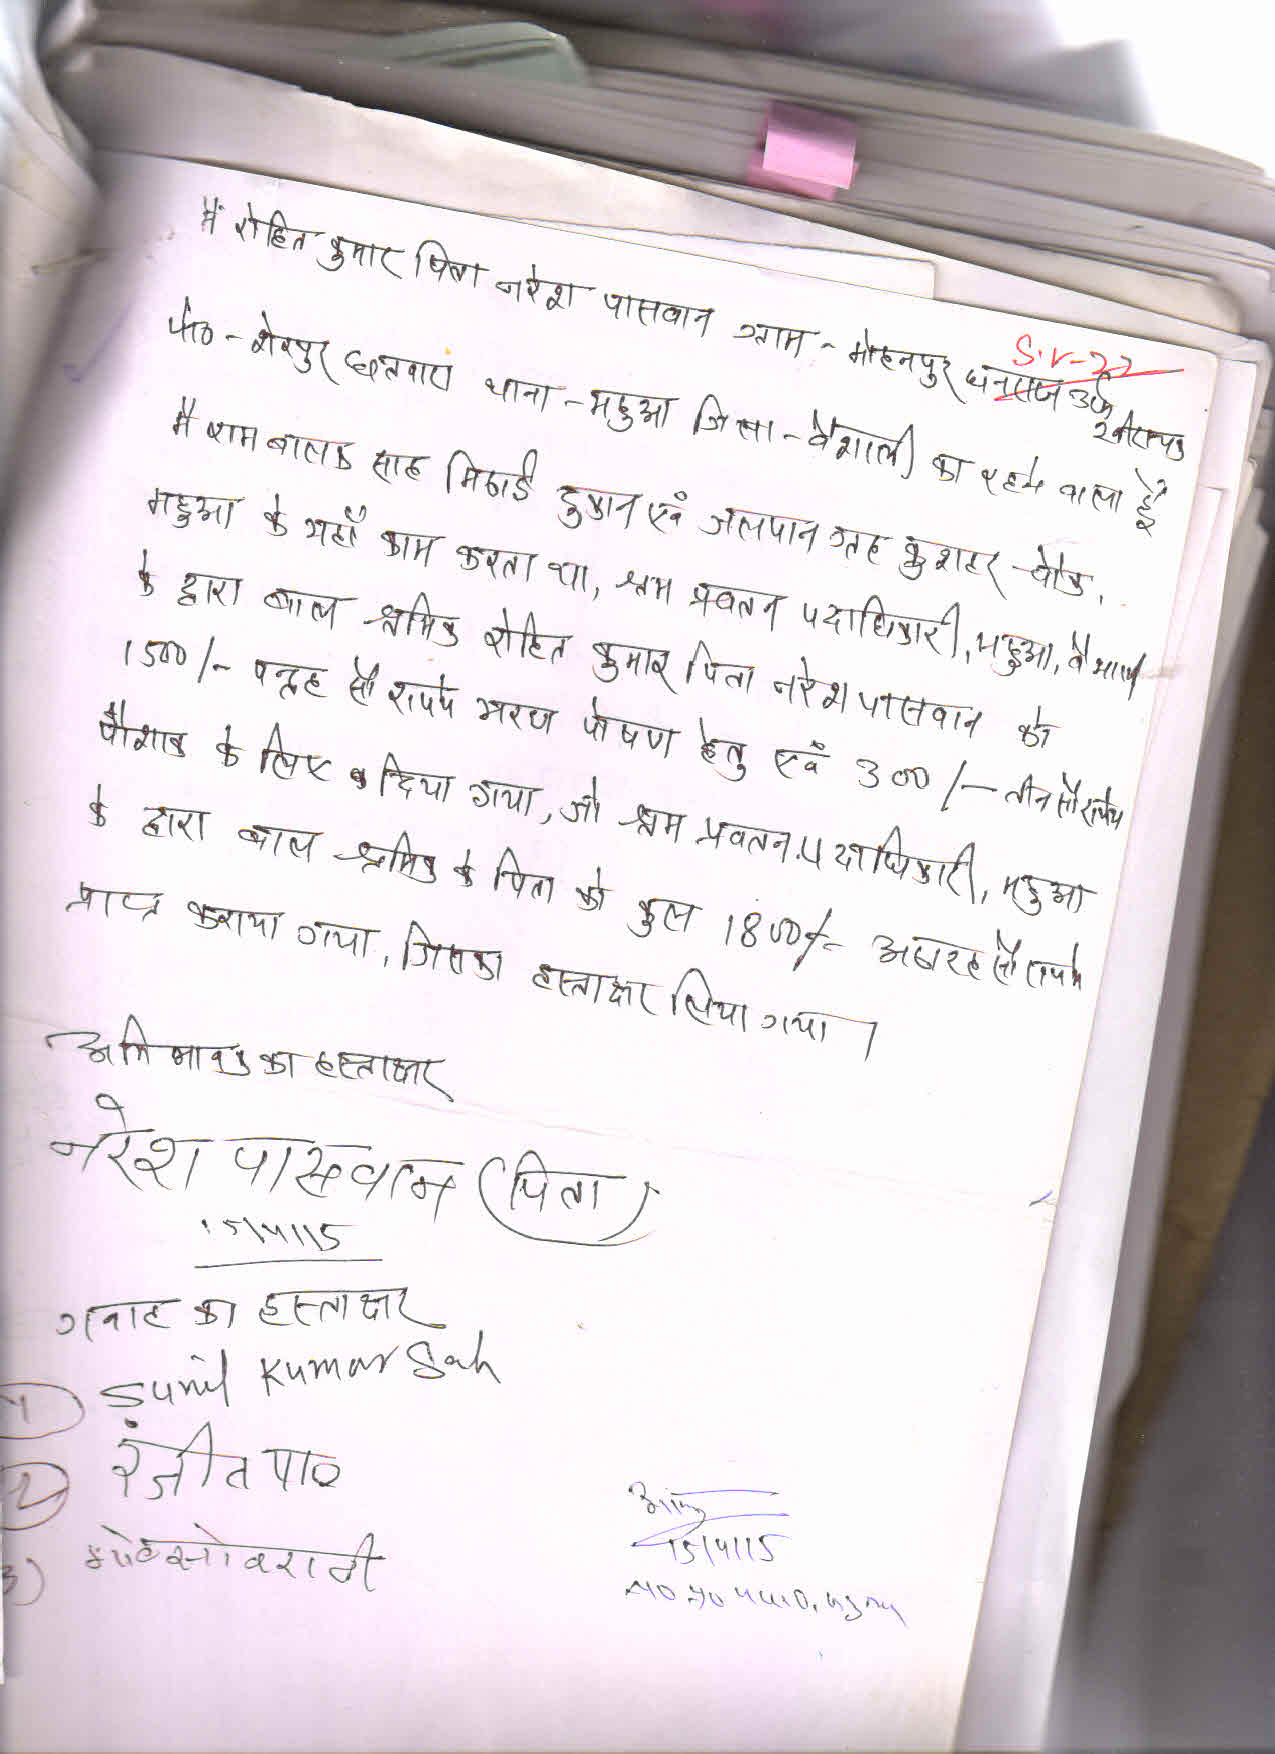 मैं रोहित कुमार पिता नरेश पासवान ग्राम - मोहनपुर धनराज उर्फ
S.V-22
पो० - शेरपुर छतवारा थाना - महुआ जिला - वैशाली का रहने वाला हूँ
मैं राम बालक साह मिठाई दुकान एवं जलपान गृह कुशहर - चौक,
महुआ के यहाँ काम करता था, श्रम प्रवतन पदाधिकारी, महुआ, वैशाली
के द्वारा बाल श्रमिक रोहित कुमार पिता नरेश पासवान को
1500/- पन्द्रह सौ रूपये भरण पोषण हेतु एवं 300/- तीन सौ रूपये
पौशाक के लिए दिया गया, जो श्रम प्रवतन पदाधिकारी, महुआ
के द्वारा बाल श्रमिक के पिता को कुल 1800/- अठारह सौ रूपये
प्राप्त कराया गया, जिसका हस्ताक्षर लिया गया।
अभिभावक का हस्ताक्षर
नरेश पासवान (पिता)
15/4/15
गवाह का हस्ताक्षर
1 Sunil Kumar Sah
2 रंजीत पा०
3)
15/4/15